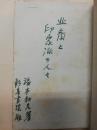 北斎と
印象派の人々
福本和夫著
新吾書院版